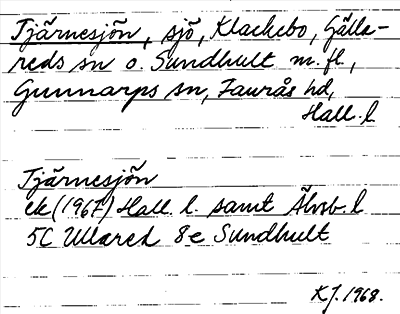 Tjärnesjön, sjö, Klackebo, Gälla-
reds sn o. Sundhult m.fl.,
Gunnarps sn, Faurås hd,
Hall. l
Tjärnesjön
ek (1967) Hall l. samt Älvsb. l
5C Ullared 8e Sundhult
KJ. 1968.